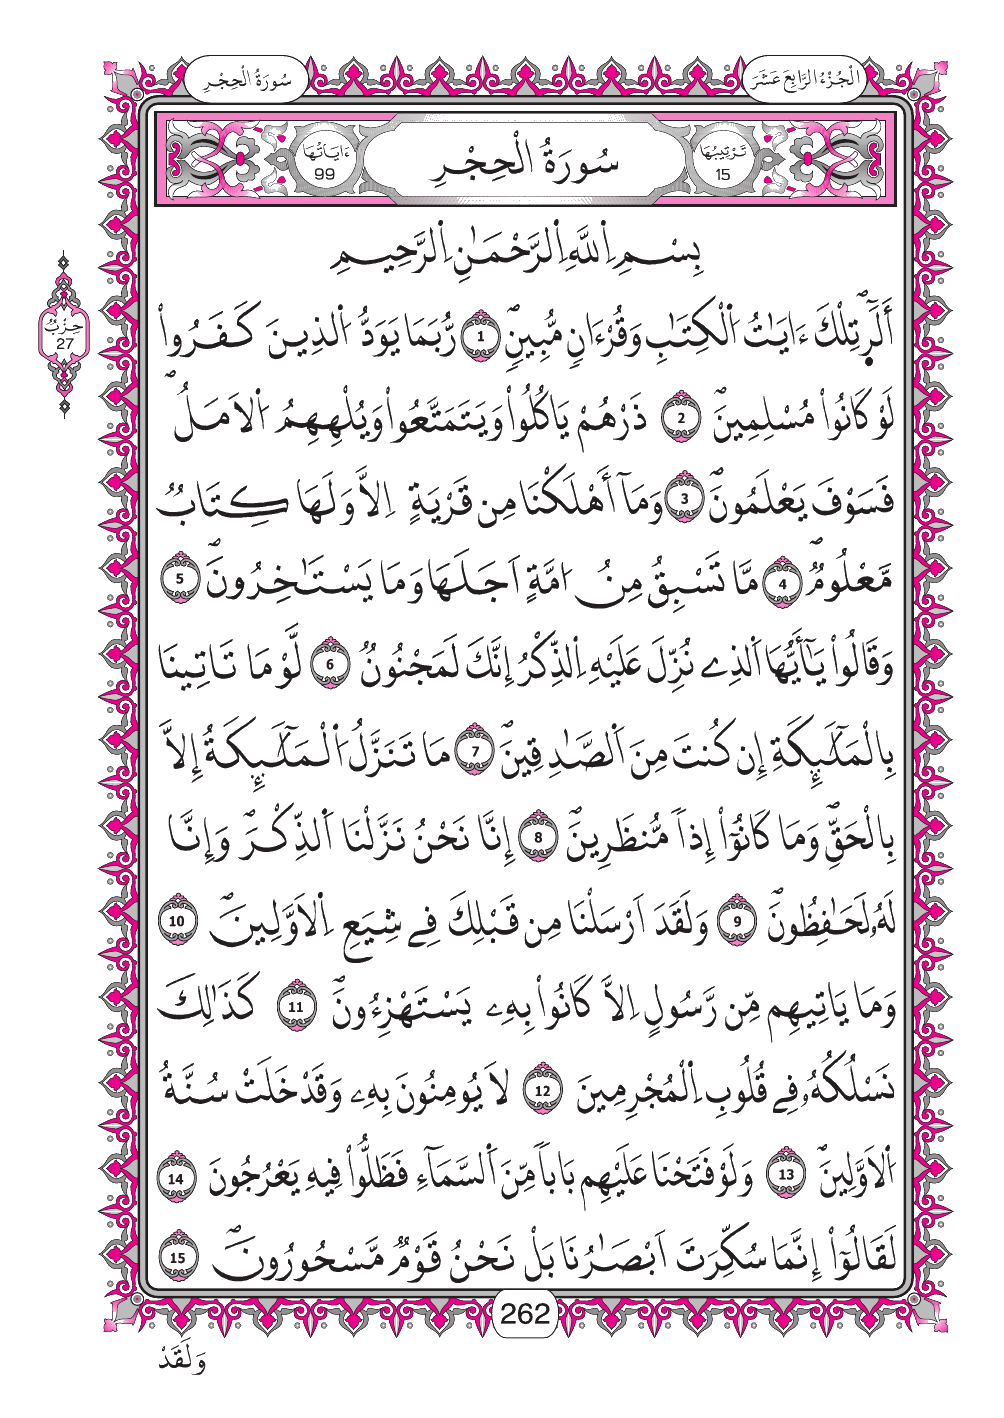 سُورَةُ الْحِجْرِ
الْجُزْءُ الرَّابِعَ عَشَرَ
تَرْتِيبُهَا
15
سُورَةُ الْحِجْرِ
ءَايَاتُهَا
99
بِسْمِ اِ۬للَّهِ اِ۬لرَّحْمَٰنِ اِ۬لرَّحِيمِ
أَلَٓرۖ تِلْكَ ءَايَٰتُ اُ۬لْكِتَٰبِ وَقُرْءَانٖ مُّبِينٖۖ 1 رُّبَمَا يَوَدُّ اُ۬لذِينَ كَفَرُواْ
حِزْبٌ
27
لَوْ كَانُواْ مُسْلِمِينَۖ 2 ذَرْهُمْ يَاكُلُواْ وَيَتَمَتَّعُواْ وَيُلْهِهِمُ اُ۬لَامَلُۖ
فَسَوْفَ يَعْلَمُونَۖ 3 وَمَآ أَهْلَكْنَا مِن قَرْيَةٍ اِلَّا وَلَهَا كِتَابٞ
مَّعْلُومٞۖ 4 مَّا تَسْبِقُ مِنُ ا۟مَّةٍ اَجَلَهَا وَمَا يَسْتَٰخِرُونَۖ 5
وَقَالُواْ يَٰٓأَيُّهَا اَ۬لذِے نُزِّلَ عَلَيْهِ اِ۬لذِّكْرُ إِنَّكَ لَمَجْنُونٞ 6 لَّوْ مَا تَاتِينَا
بِالْمَلَٰٓئِكَةِ إِن كُنتَ مِنَ اَ۬لصَّٰدِقِينَۖ 7 مَا تَنَزَّلُ اُ۬لْمَلَٰٓئِكَةُ إِلَّا
بِالْحَقِّۖ وَمَا كَانُوٓاْ إِذاٗ مُّنظَرِينَۖ 8 إِنَّا نَحْنُ نَزَّلْنَا اَ۬لذِّكْرَۖ وَإِنَّا
لَهُۥ لَحَٰفِظُونَۖ 9 وَلَقَدَ اَرْسَلْنَا مِن قَبْلِكَ فِے شِيَعِ اِ۬لَاوَّلِينَۖ 10
وَمَا يَاتِيهِم مِّن رَّسُولٍ اِلَّا كَانُواْ بِهِۦ يَسْتَهْزِءُونَۖ 11 كَذَٰلِكَ
نَسْلُكُهُۥ فِے قُلُوبِ اِ۬لْمُجْرِمِينَ 12 لَا يُومِنُونَ بِهِۦ وَقَدْ خَلَتْ سُنَّةُ
اُ۬لَاوَّلِينَۖ 13 وَلَوْ فَتَحْنَا عَلَيْهِم بَاباٗ مِّنَ اَ۬لسَّمَآءِ فَظَلُّواْ فِيهِ يَعْرُجُونَ 14
لَقَالُوٓاْ إِنَّمَا سُكِّرَتَ اَبْصَٰرُنَا بَلْ نَحْنُ قَوْمٞ مَّسْحُورُونَۖ 15
262
وَلَقَدْ